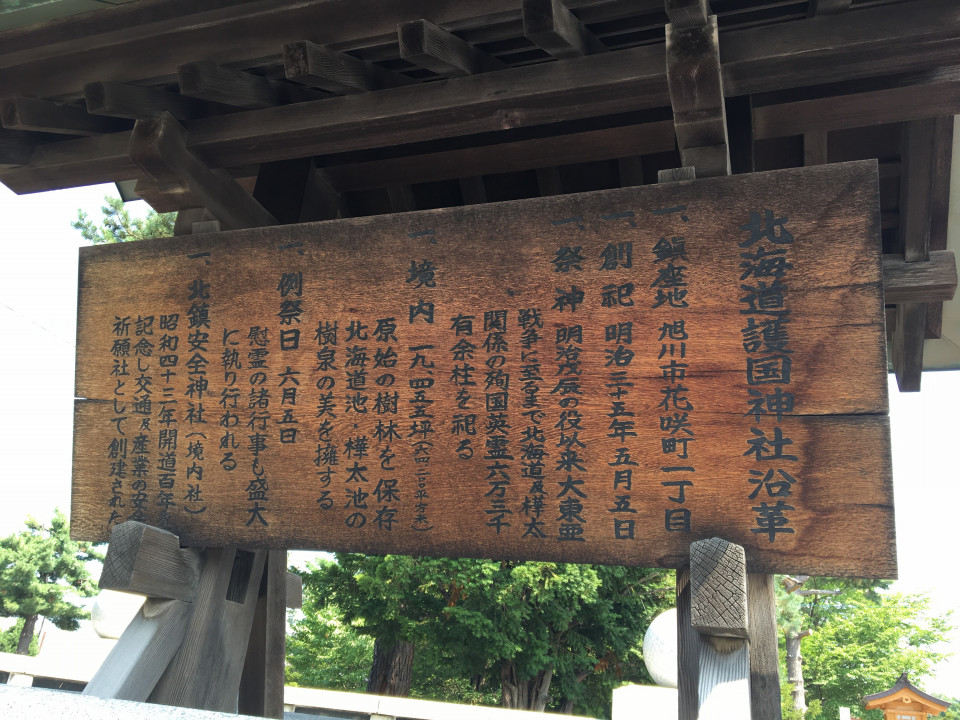 北海道護国神社沿革
一、鎮座地 旭川市花咲町一丁目
一、創祀 明治三十五年五月五日
一、祭神 明治戊辰の役以来大東亜
戦争に至るまで北海道及樺太
関係の殉国英霊六万三千
有余柱を祀る
一、境内 一九四五五坪(六四二〇〇平方米)
原始の樹林を保存
北海道池・樺太池の
樹泉の美を擁する
一、例祭日 六月五日
慰霊の諸行事も盛大
に執り行われる
一、北鎮安全神社(境内社)
昭和四十三年開道百年
記念し交通及産業の安
祈願社として創建された